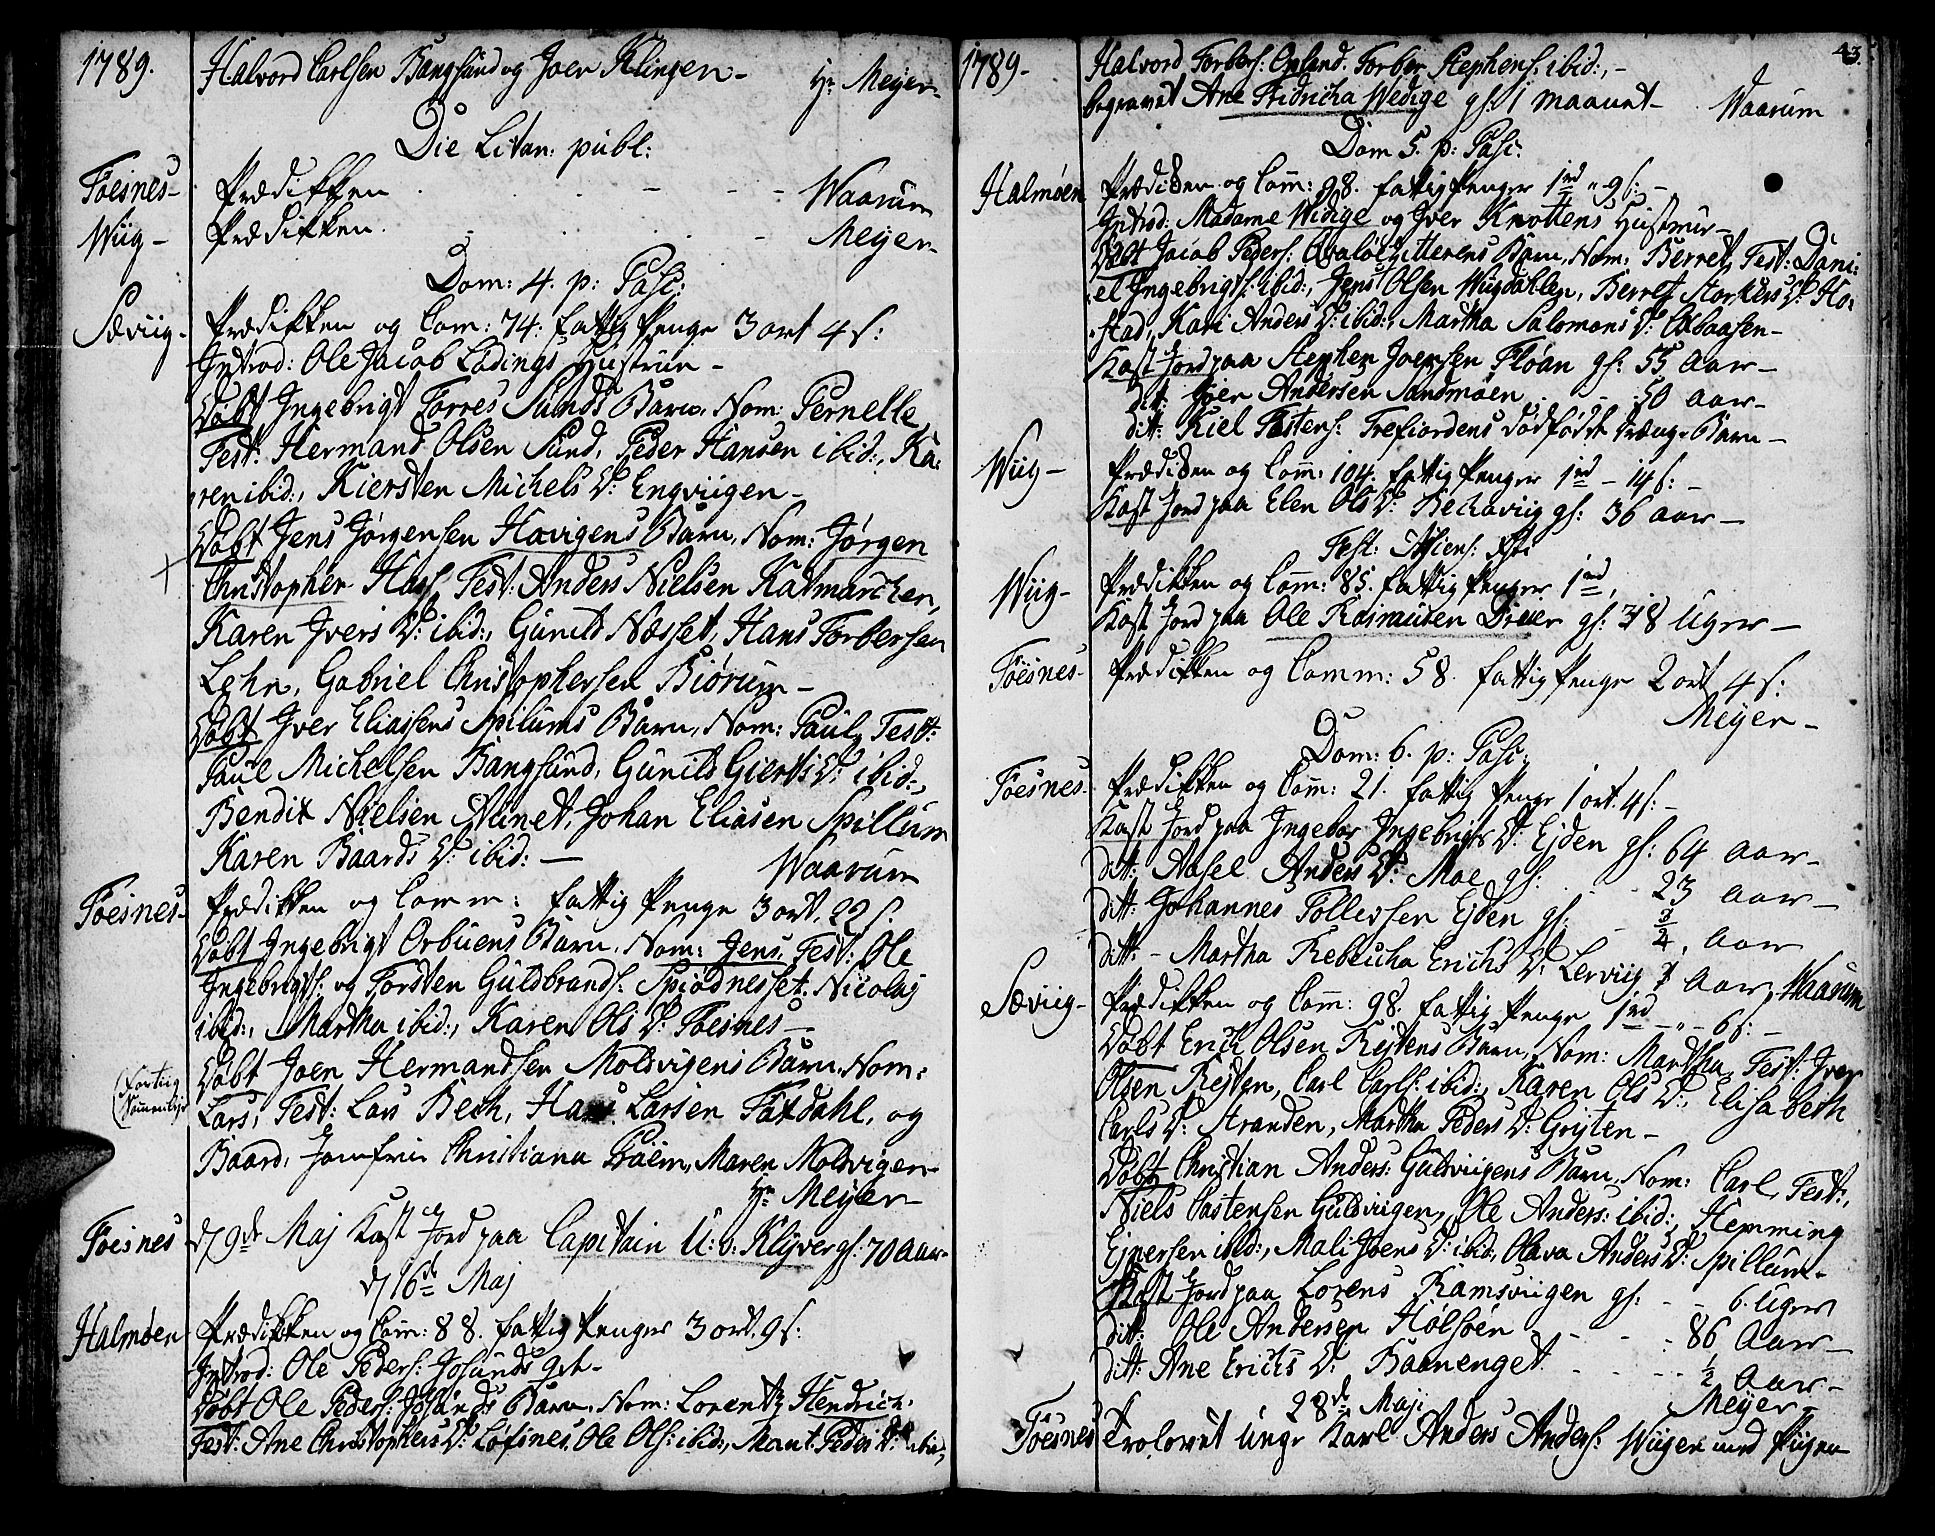 1789.
Halvord Carlsen Bangsund og Joen Klingen -
Hr Meyer -
Die Litan: publ:
Foesnes - Prædikken - - - Waarum
Wiig - Prædikken - - Meyer -
Dom: 4. p: Pasc:
Sæviig - Prædikken og Com: 74: fattig Penge 3 ort 4 s:
Introd: Ole Jacob Lødings Hustrue -
Døbt Ingebrigt Torres Sunds Barn, Nom: Pernelle,
Test: Hermand Olsen Sund, Peder Hansen ibid:, Ka-
ren ibid:, Kiersten Michels D: Engviigen -
Døbt Jens Jørgensen Havigens Barn, Nom: Jørgen
Christopher Test: Anders Nielsen Katmarchen,
Karen Ivers D: ibid:, Gunild Næsset, Hans Torbersen
Lehn, Gabriel Christophersen Biørum -
Døbt Iver Eliassens Spilums Barn, Nom: Paul, Test:
Paul Michelsen Bangsund, Gunild Gierts D: ibid:,
Bendix Nielsen Aunet, Johan Eliasen Spillum
Karen Baards D: ibid: -
Waarum
Foesnes - Prædikken og Comm: fattig Penge 3 ort. 22 s.
Døbt Ingebrigt Orbuens Barn, Nom: Jens, Test: Ole
Ingebrigts: og Torsten Guldbrands: Spiødnesset: Nicolaj
ibid:, Martha ibid:, Karen Ols D: Foesnes -
Døbt Joen Hermandsen Molvigens Barn, Nom:
Lars, Test: Lars Bech, Hans Larsen Faxdahl, og
Baard, Jomfrue Christiana Maren Molvigen -
Hr Meyer -
Foesnes d 9de Maj Kast Jord paa Capitain U: v: Klyver gl: 70 aar -
d 16de Maj
Halmøen - Prædikken og Com: 88. fattig Penger 3 ort. 9 s:
Introd: Ole Peders: Josunds
Døbt Ole Peders: Josunds Barn, Nom: Lorentz Hendrich,
Test: Ane Christophers D: Løfsnes, Ole Ols: ibid:, Peders D: ibid:,
43
1789 -
Halvord Torbers: Opland. Torber Stephens: ibid:, -
begravet Ane Fridricha Wedige gl: 1 maanet - Waarum
Dom 5. p: Pasc:
Halmøen Prædiken og Com: 98. fattig Penger 1 rd " 9 s: -
Introd: Madame Widige og Iver Knottens Hustruer -
Døbt Jacob Peders: Barn, Nom: Berret, Test: Dani-
el Ingebrigts: ibid:, Jens Olsen Berret Storkers D: Ho-
stad, Kari Anders D: ibid:, Martha Salomons D: Oxbaasen -
Kast Jord paa Stephen Joensen Fløan gl: 55 aar -
dit: Iver Andersen Sandmoen - - 50 aar -
dit: Kiel Trefiordens dødfødt Drænge Barn -
Wiig - Prædiken og Com: 104. fattig Penger 1 rd - 14 s: -
Kast Jord paa Elen Ols D: gl: 36 aar -
Fest: Ascens: Xsti
Wiig - Prædikken og Com: 85. fattig Penger 1 rd,
Kast Jord paa Ole Rasmusen gl: 8 Uger -
Foesnes - Prædikken og Comm: 58. fattig Penge 2 ort 4 s:
Meyer -
Dom: 6. p: Pasc:
Foesnes - Prædikken og Com: 21. fattig Penge 1 ort. 4 s: -
Kast Jord paa Ingebor Ingebrigts D: Ejden gl: 64 aar -
ditt: Aasel Anders D: Moe gl: 23 aar -
ditt: Johannes Tollefsen Ejden gl: - 3/4 aar
ditt - Martha Rebbecha Erichs D: Lerviig aar, Waarum
Sæviig - Prædikken og Com: 98. fattig Penge 1 rd - " - 6 s: -
Døbt Erich Olsen Restens Barn, Nom: Martha, Test: Iver
Olsen Resten, Carl Carls: ibid:, Karen Ols D:, Elisabeth
Carls D: Stranden, Martha Peders D: Grøten -
Døbt Christian Anders: Guldviigens Barn, Nom: Carl, Test:,
Niels Castensen Guldvigen, Ole Anders: ibid:, Hemming
Ejnersen ibid:, Mali Joens D: ibid:, Olava Anders D: Spillum -
Kast Jord paa Lorens Ramsviigen gl: - - 6. Uger
ditt: Ole Andersen Holsøen - - - 86 Aar -
ditt: Ane Erichs D: Baanenget - - - 1/2 aar -
28de Maji Meyer -
Foesnes Trolovet Unge Karl Anders Anders: Wiigen med Pigen